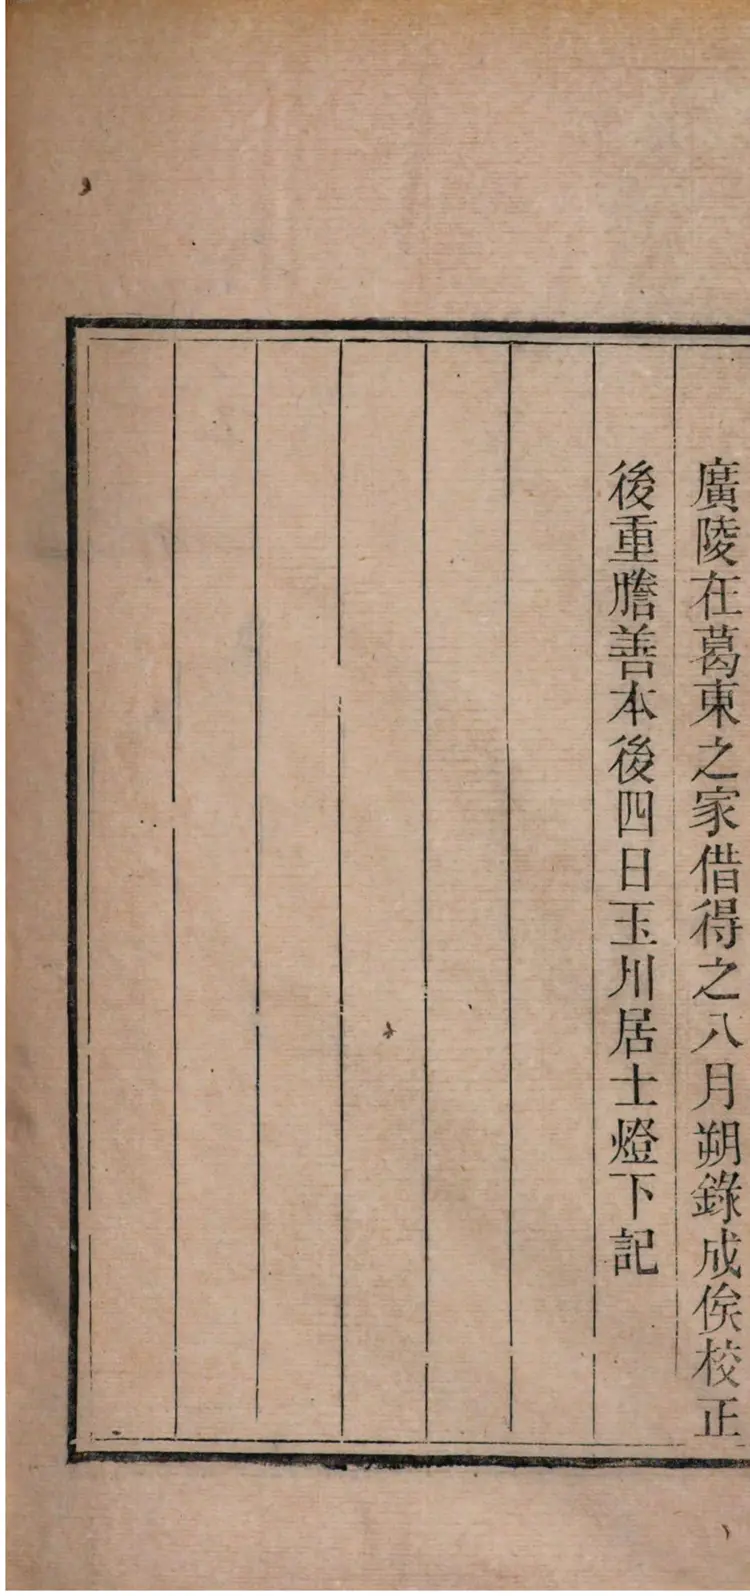 廣陵在葛東之家借得之八月朔錄成俟校正
後重謄善本後四日玉川居士燈下記